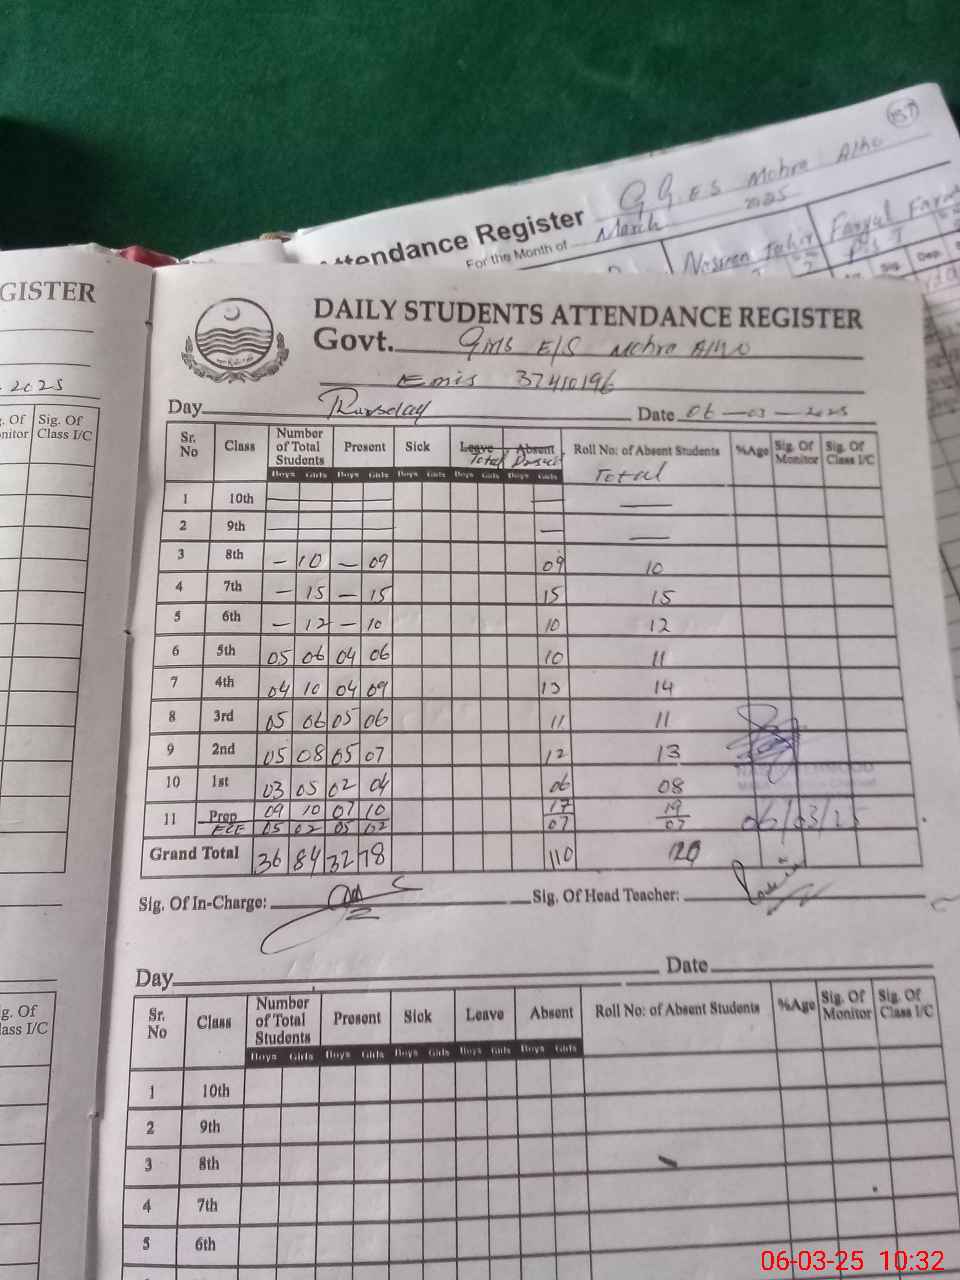 137
Attendance Register G G.E.S Mohra Alho
For the Month of March 2025
Nosreen Tahir
GISTER
2025
Sig. Of
Class I/C
DAILY STUDENTS ATTENDANCE REGISTER
Govt. GMS E/S Mohra Alho
Emis 37410196
Day Thursday Date 06-03-2025
Sr. No Class Number of Total Students Present Sick Leave Absent Roll No: of Absent Students %Age Sig. Of Monitor Sig. Of Class I/C
Total Total
Boys Girls Boys Girls Boys Girls Boys Girls Boys Girls
1 10th — — —
2 9th — — —
3 8th — 10 — 09 09 10
4 7th — 15 — 15 15 15
5 6th — 12 — 10 10 12
6 5th 05 06 04 06 10 11
7 4th 04 10 04 09 13 14
8 3rd 05 06 05 06 11 11
9 2nd 05 08 05 07 12 13
10 1st 03 05 02 04 06 08
11 Prep 09 10 07 10 17 19
ECE 05 02 05 02 07 07
06/03/25
Grand Total 36 84 32 78 110 120
Sig. Of In-Charge: Sig. Of Head Teacher:
Day Date
Sr. No Class Number of Total Students Present Sick Leave Absent Roll No: of Absent Students %Age Sig. Of Monitor Sig. Of Class I/C
Boys Girls Boys Girls Boys Girls Boys Girls Boys Girls
1 10th
2 9th
3 8th
4 7th
5 6th
06-03-25 10:32